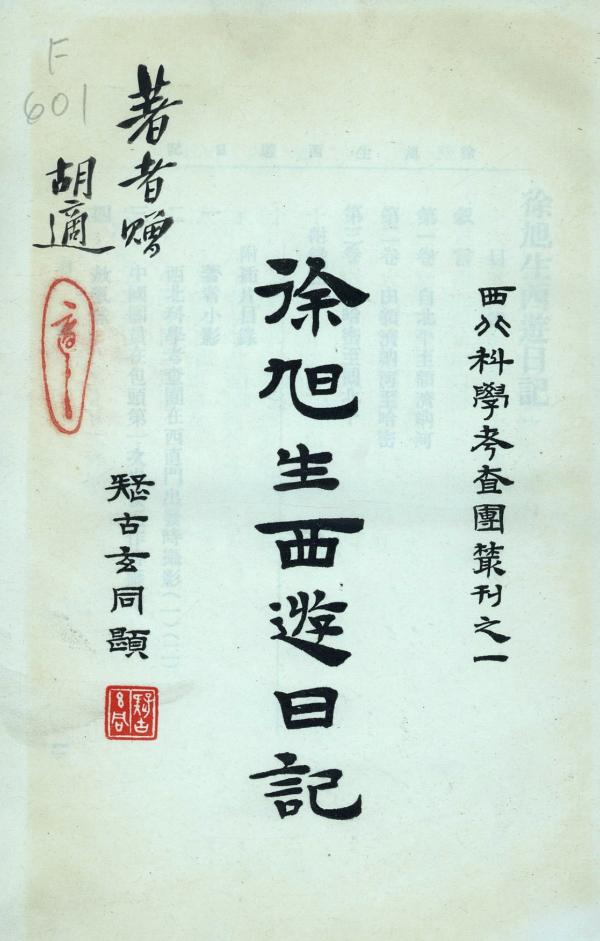 F
601
西北科學考查團叢刊之一
徐旭生西遊日記
疑古玄同題
著者贈
胡適